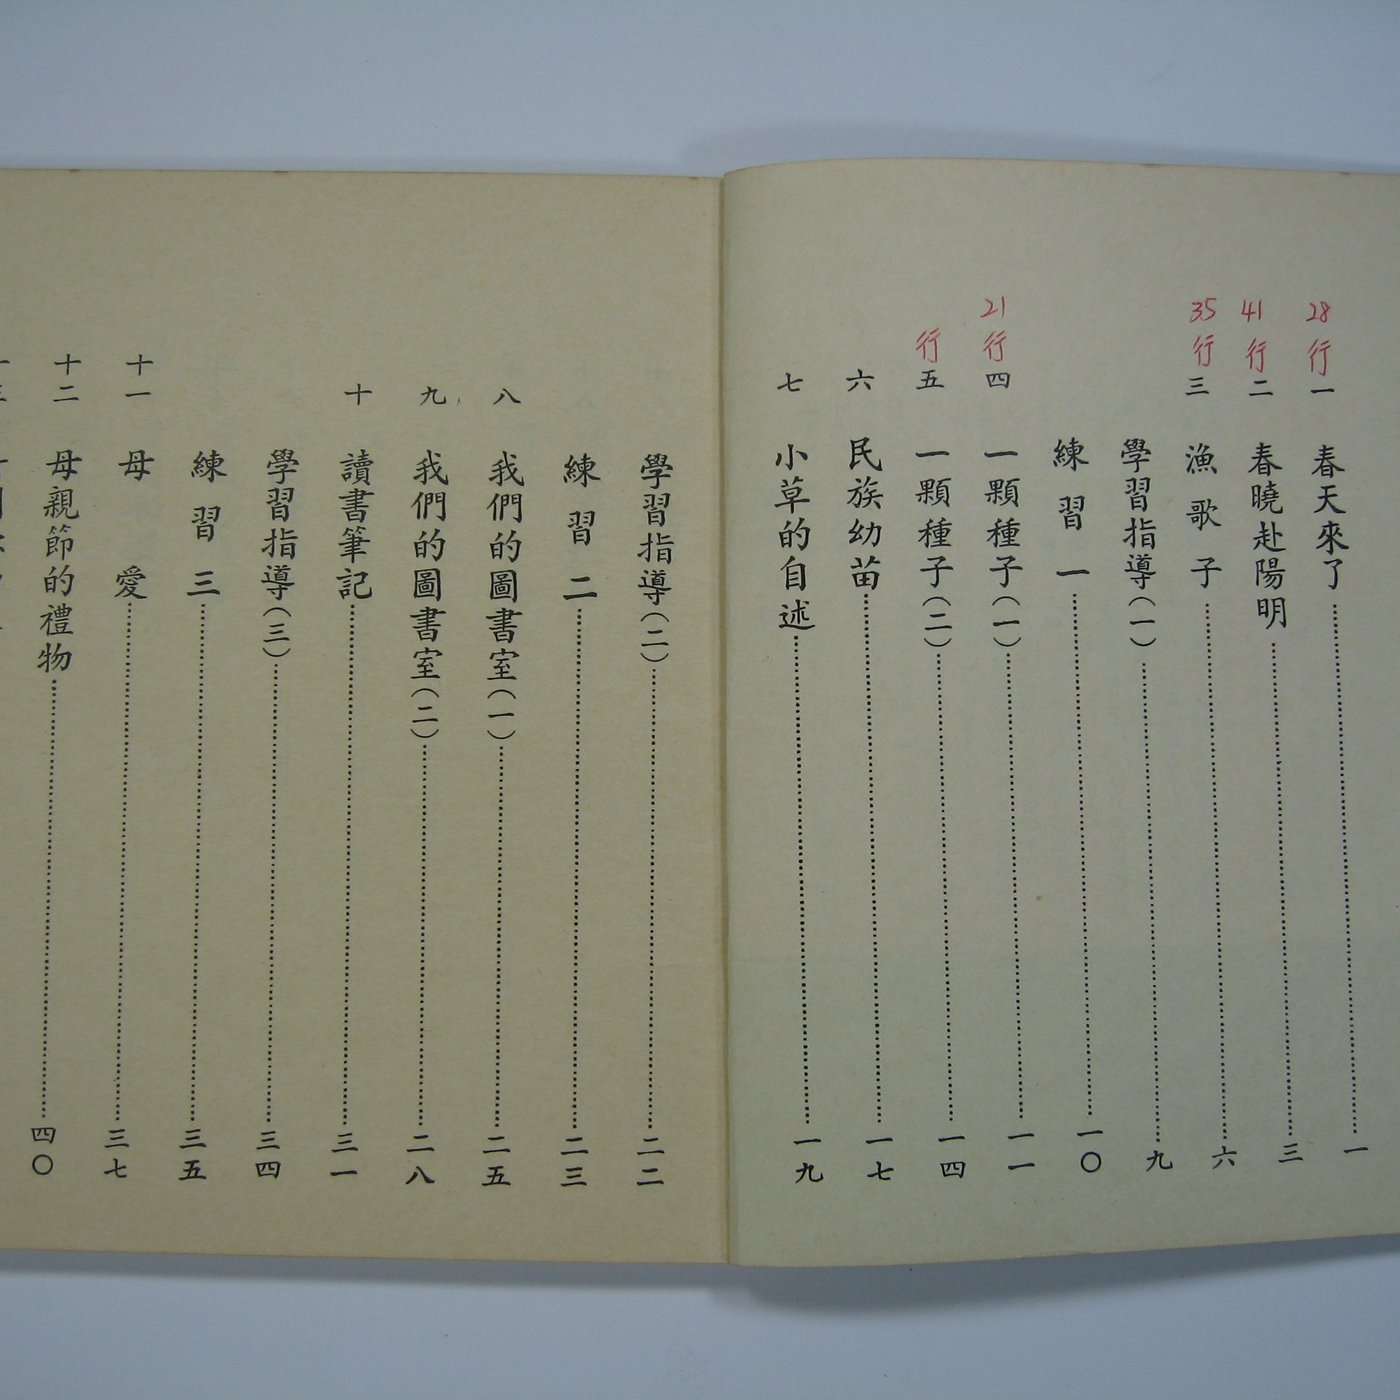 28行 一 春天來了 一
41行 二 春曉赴陽明 三
35行 三 漁歌子 六
學習指導(一) 九
練習一 一〇
21行 四 一顆種子(一) 一一
行 五 一顆種子(二) 一四
六 民族幼苗 一七
七 小草的自述 一九
學習指導(二) 二二
練習二 二三
八 我們的圖書室(一) 二五
九 我們的圖書室(二) 二八
十 讀書筆記 三一
學習指導(三) 三四
練習三 三五
十一 母愛 三七
十二 母親節的禮物 四〇